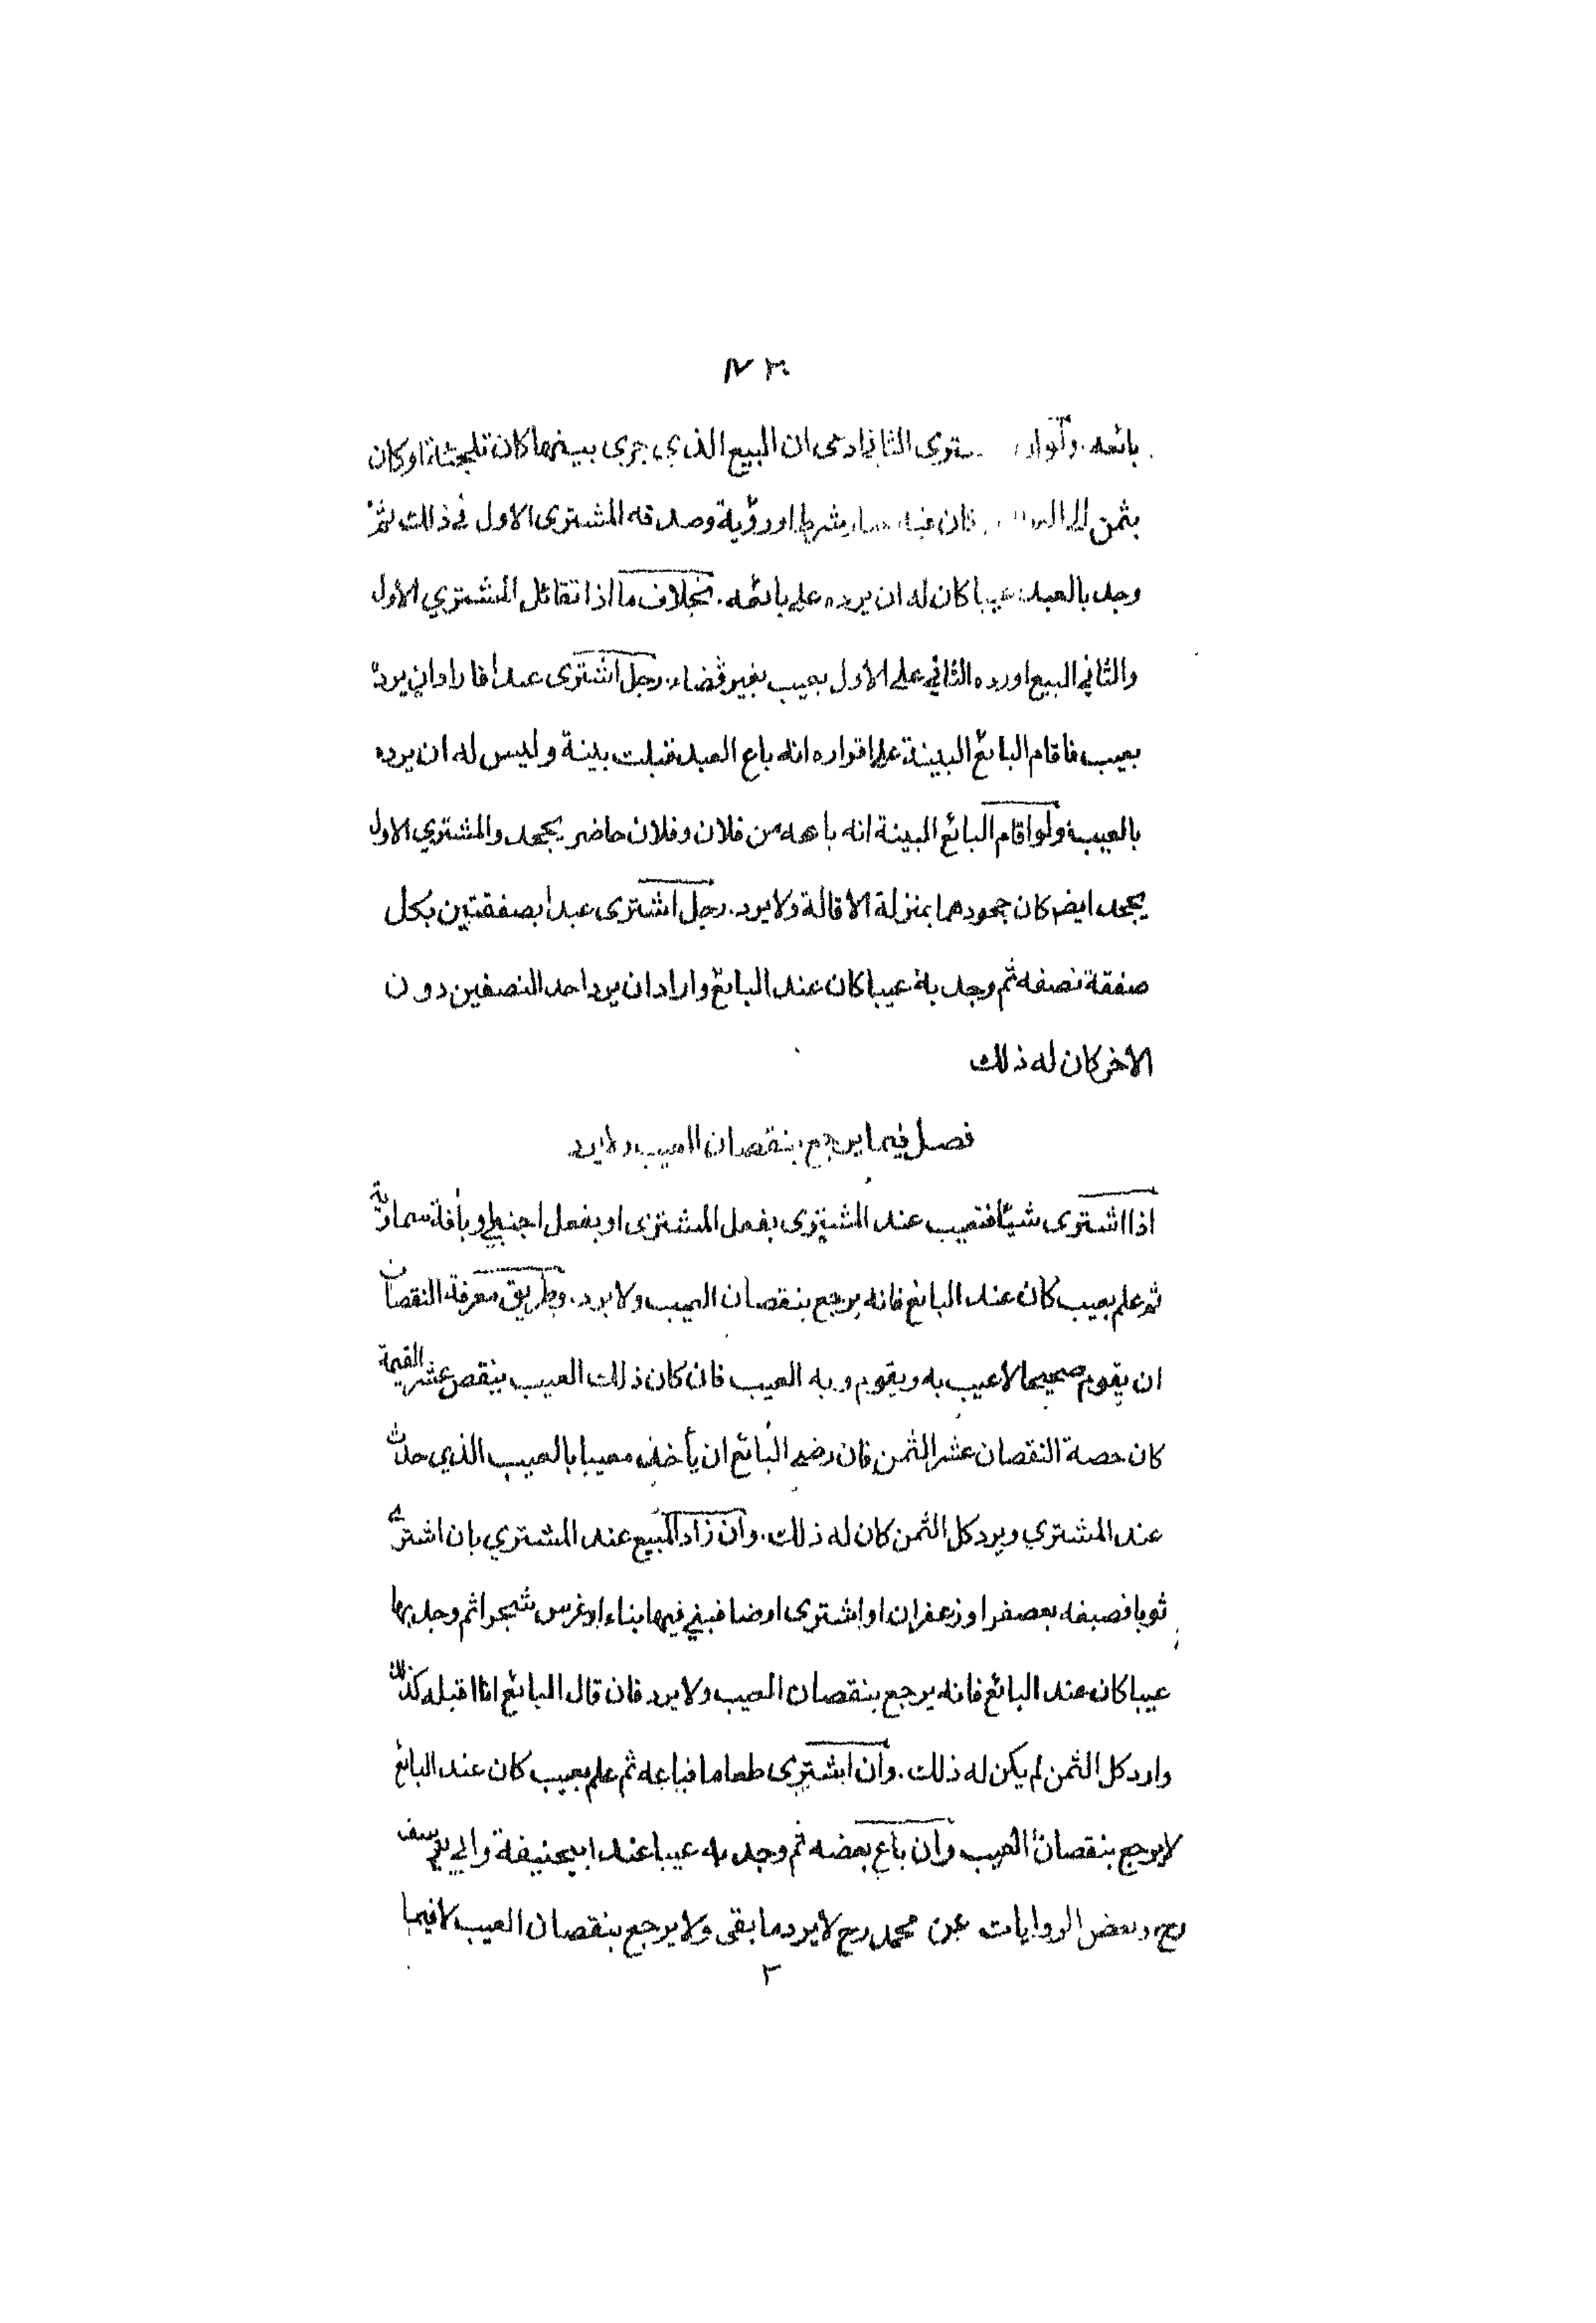 بائعه. ولو ان ستري الثاني ادعى ان البيع الذي جرى بينهما كان تلجئة او كان
بثمن الى فان فيه بشرط او رؤية وصدقه المشترى الاول في ذلك ثم
وجد بالعبد عيبا كان له ان يرده على بائعه. بخلاف ما اذا تقائل المشتري الاول
والثاني البيع او رده الثاني على الاول بعيب بغير قضاء. رجل اشترى عبدا فاراد ان يرده
بعيب فاقام البائع البينة على اقراره انه باع العبد فبلت بينة وليس له ان يرده
بالعيب ولو اقام البائع البينة انه باعه من فلان وفلان حاضر يجحد والمشتري الاول
يجحد ايض كان جحودهما بمنزلة الاقالة ولا يرد. رجل اشترى عبدا بصفقتين بكل
صفقة نصفه ثم وجد به عيبا كان عند البائع واراد ان يرد احد النصفين دون
الاخر كان له ذلك
فصل فيما يرجع بنقصان العيب ولا يرد
اذا اشترى شيئا فتعيب عند المشترى بفعل المشترى او بفعل اجنبي او بأفة سماوية
ثم علم بعيب كان عند البائع فانه يرجع بنقصان العيب ولا يرد. وطريق معرفة النقصان
ان يقوم صحيحا لا عيب به ويقوم وبه العيب فان كان ذلك العيب ينقص عشر القيمة
كان حصة النقصان عشر الثمن فان رضي البائع ان يأخذه معيبا بالعيب الذي حدث
عند المشتري ويرد كل الثمن كان له ذلك. وان زاد المبيع عند المشتري بان اشترى
ثوبا فصبغه بعصفر او زعفران او اشترى ارضا فبنى فيها بناء او غرس شجرا ثم وجد بها
عيبا كان عند البائع فانه يرجع بنقصان العيب ولا يرد فان قال البائع انا اقبله كذلك
وارد كل الثمن لم يكن له ذلك. وان اشترى طعاما فباعه ثم علم بعيب كان عند البائع
لا يرجع بنقصان العيب وان باع بعضه ثم وجد به عيبا عند ابيحنيفة وابي يوسف
رح وبعض الروايات عن محمد رح لا يرد ما بقى ولا يرجع بنقصان العيب لا فيما